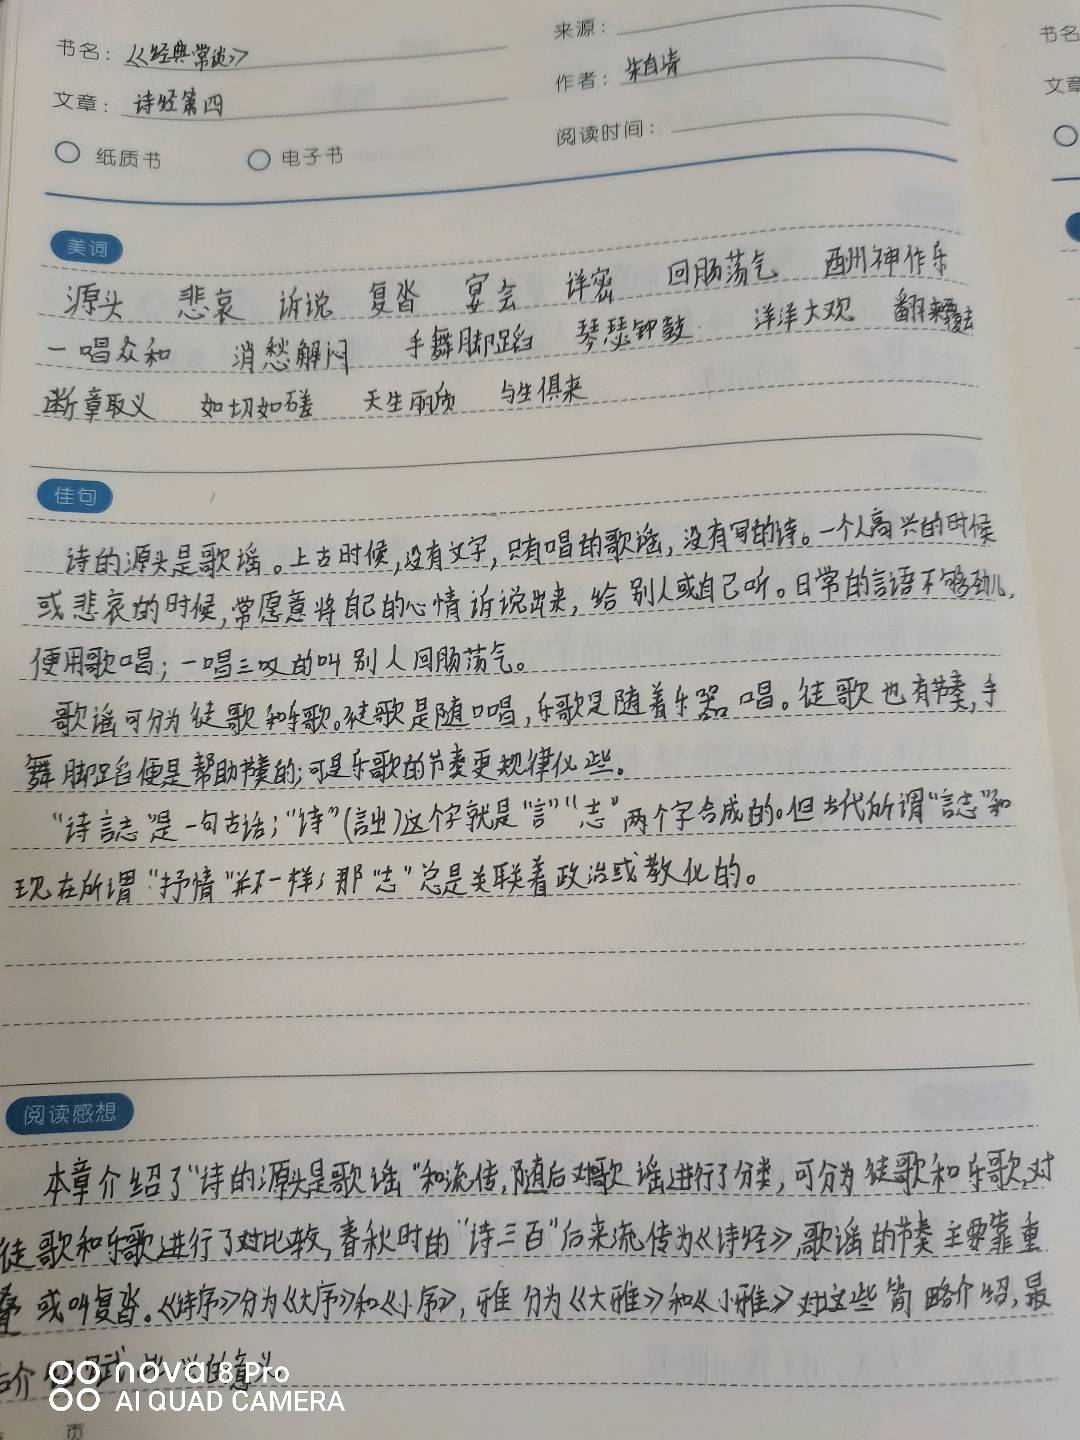 书名：《经典常谈》
来源：
文章：诗经第四
作者：朱自清
纸质书 电子书
阅读时间：
书名
文章
美词
源头 悲哀 诉说 复沓 宴会 详密 回肠荡气 酬神作乐
一唱众和 消愁解闷 手舞脚蹈 琴瑟钟鼓 洋洋大观 翻来覆去
断章取义 如切如磋 天生丽质 与生俱来
佳句
诗的源头是歌谣。上古时候,没有文字,只有唱的歌谣,没有写的诗。一个人高兴的时候
或悲哀的时候,常愿意将自己的心情诉说出来,给别人或自己听。日常的言语不够劲儿,
便用歌唱;一唱三叹的叫别人回肠荡气。
歌谣可分为徒歌和乐歌。徒歌是随口唱,乐歌是随着乐器唱。徒歌也有节奏,手
舞脚蹈便是帮助节奏的;可是乐歌的节奏更规律化些。
“诗言志”是一句古话;“诗”(訨)这个字就是“言”“志”两个字合成的。但古代所谓“言志”和
现在所谓“抒情”并不一样;那“志”总是关联着政治或教化的。
阅读感想
本章介绍了“诗的源头是歌谣”和流传,随后对歌谣进行了分类,可分为徒歌和乐歌,对
徒歌和乐歌进行了对比较,春秋时的“诗三百”后来流传为《诗经》,歌谣的节奏主要靠重
叠或叫复沓。《诗序》分为《大序》和《小序》,雅分为《大雅》和《小雅》对这些简略介绍,最
后介绍
nova 8 Pro
AI QUAD CAMERA
页